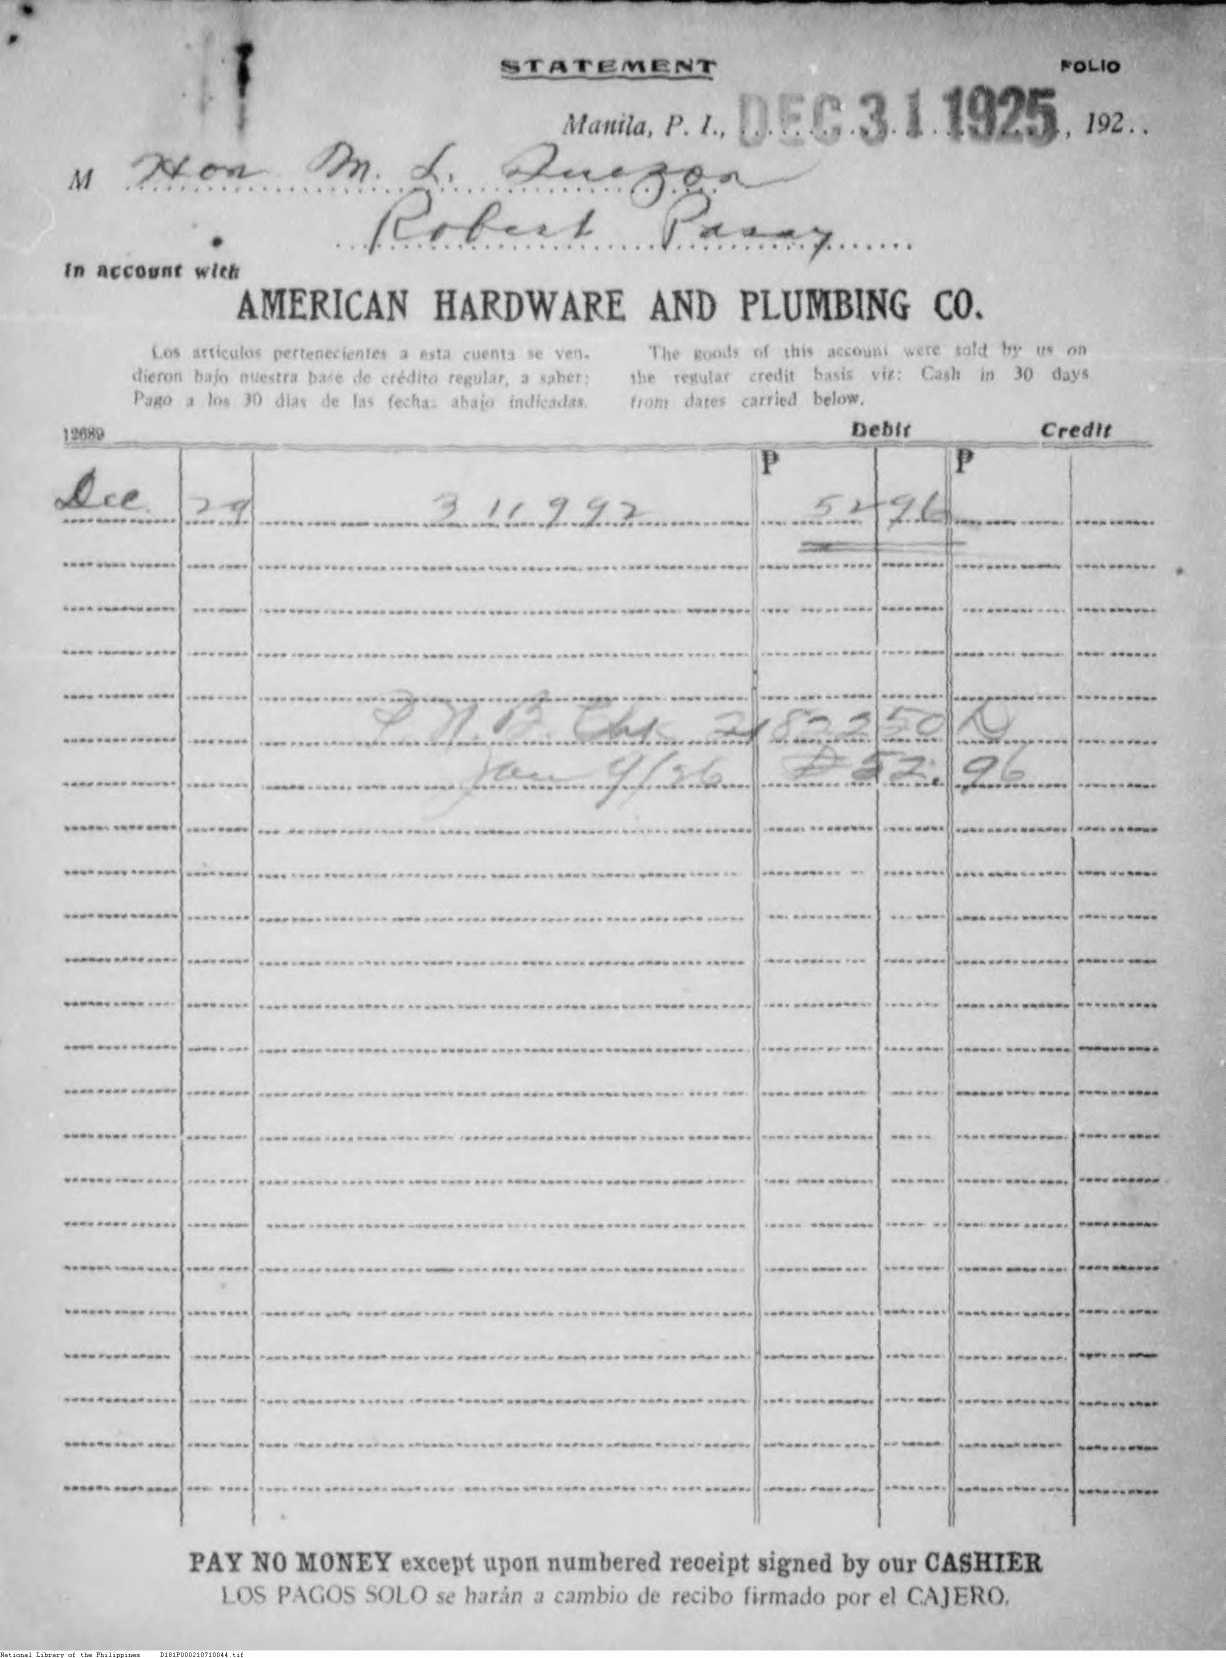 STATEMENT
FOLIO
Manila, P. I., DEC 31 1925, 192..
M Hon M. L. Quezon
Robert Pasay
In account with
AMERICAN HARDWARE AND PLUMBING CO.
Los articulos pertenecientes a esta cuenta se ven-
dieron bajo nuestra base de crédito regular, a saber:
Pago a los 30 dias de las fechas abajo indicadas.
The goods of this account were sold by us on
the regular credit basis viz: Cash in 30 days
from dates carried below.
12689 Debit Credit
P P
Dec 29 311992 52 96
P.N.B. Chk 2182250 D
Jan 9/26 P 52.96
PAY NO MONEY except upon numbered receipt signed by our CASHIER
LOS PAGOS SOLO se harán a cambio de recibo firmado por el CAJERO.
National Library of the Philippines D181P000210710044.tif